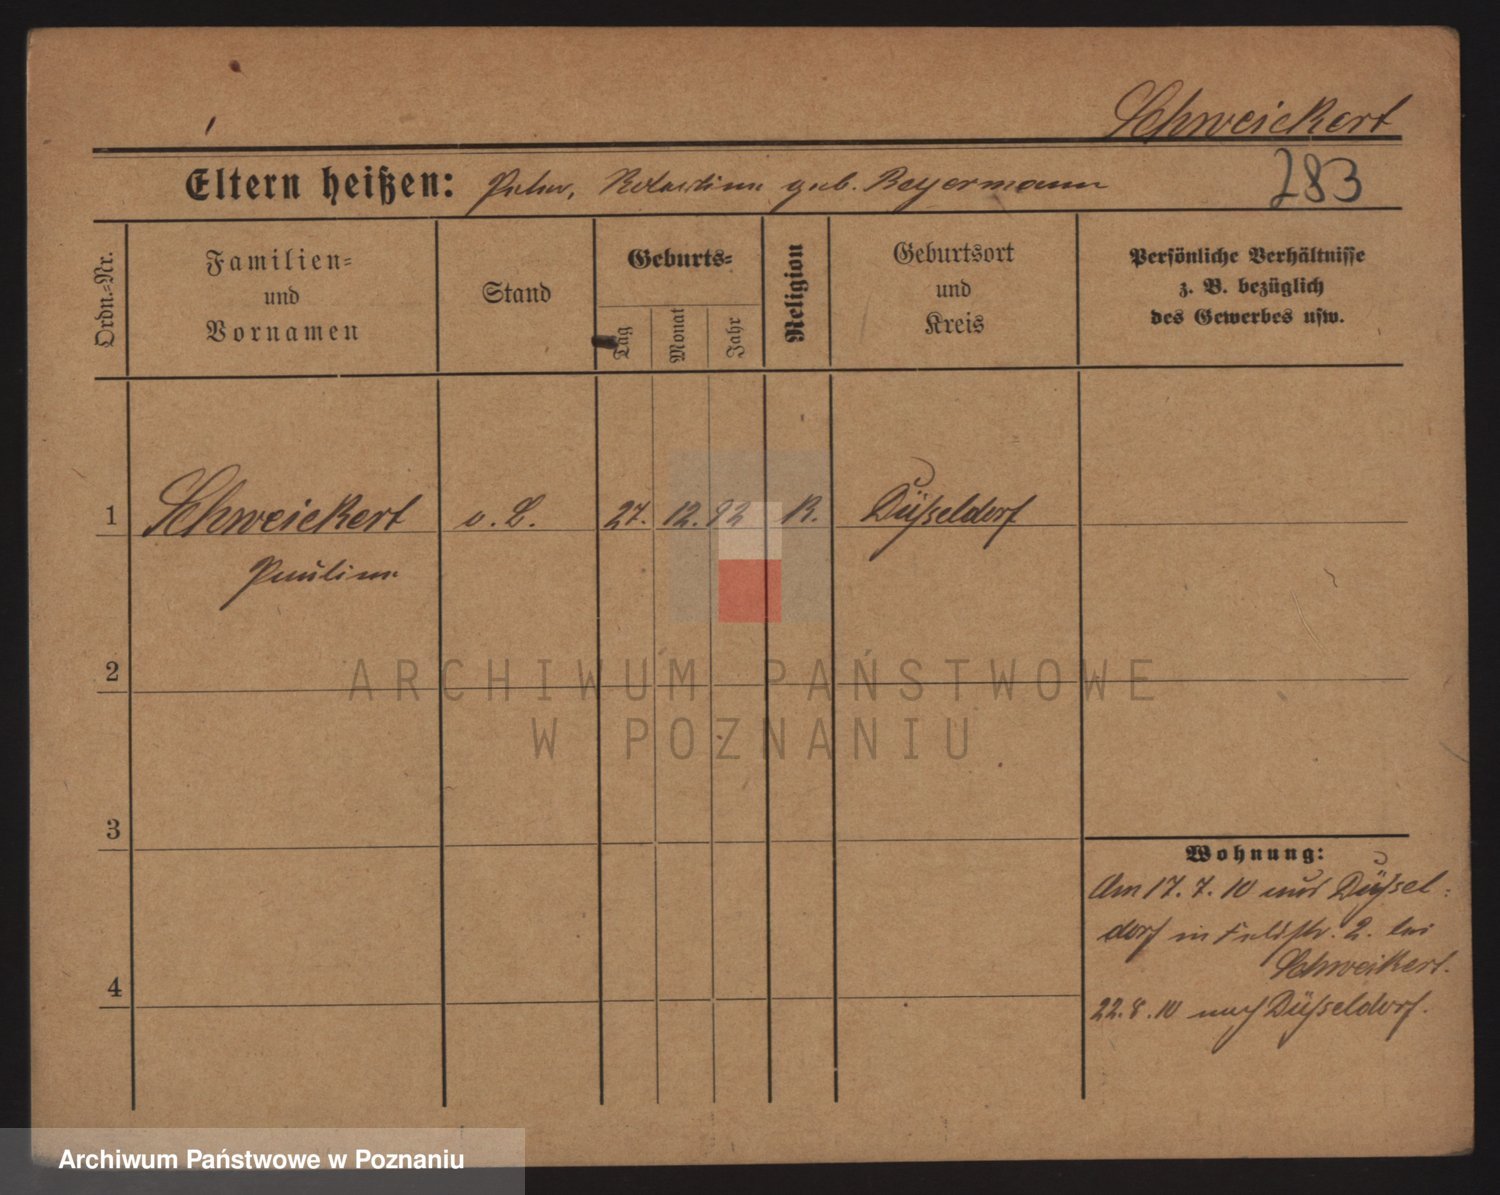 Schweickert
Eltern heißen: Peter, geb. Beyermann
283
Ordn.=Nr.
Familien=
und
Vornamen
Stand
Geburts=
Tag
Monat
Jahr
Religion
Geburtsort
und
Kreis
Persönliche Verhältnisse
z. B. bezüglich
des Gewerbes usw.
1 Schweickert o. B. 27. 12. 92 K. Düsseldorf
Pauline
2
3
4
Wohnung:
Am 17. 7. 10 aus Düssel-
dorf in Feldstr. 2. bei
Schweikert.
22. 8. 10 nach Düsseldorf.
ARCHIWUM PAŃSTWOWE
W POZNANIU
Archiwum Państwowe w Poznaniu